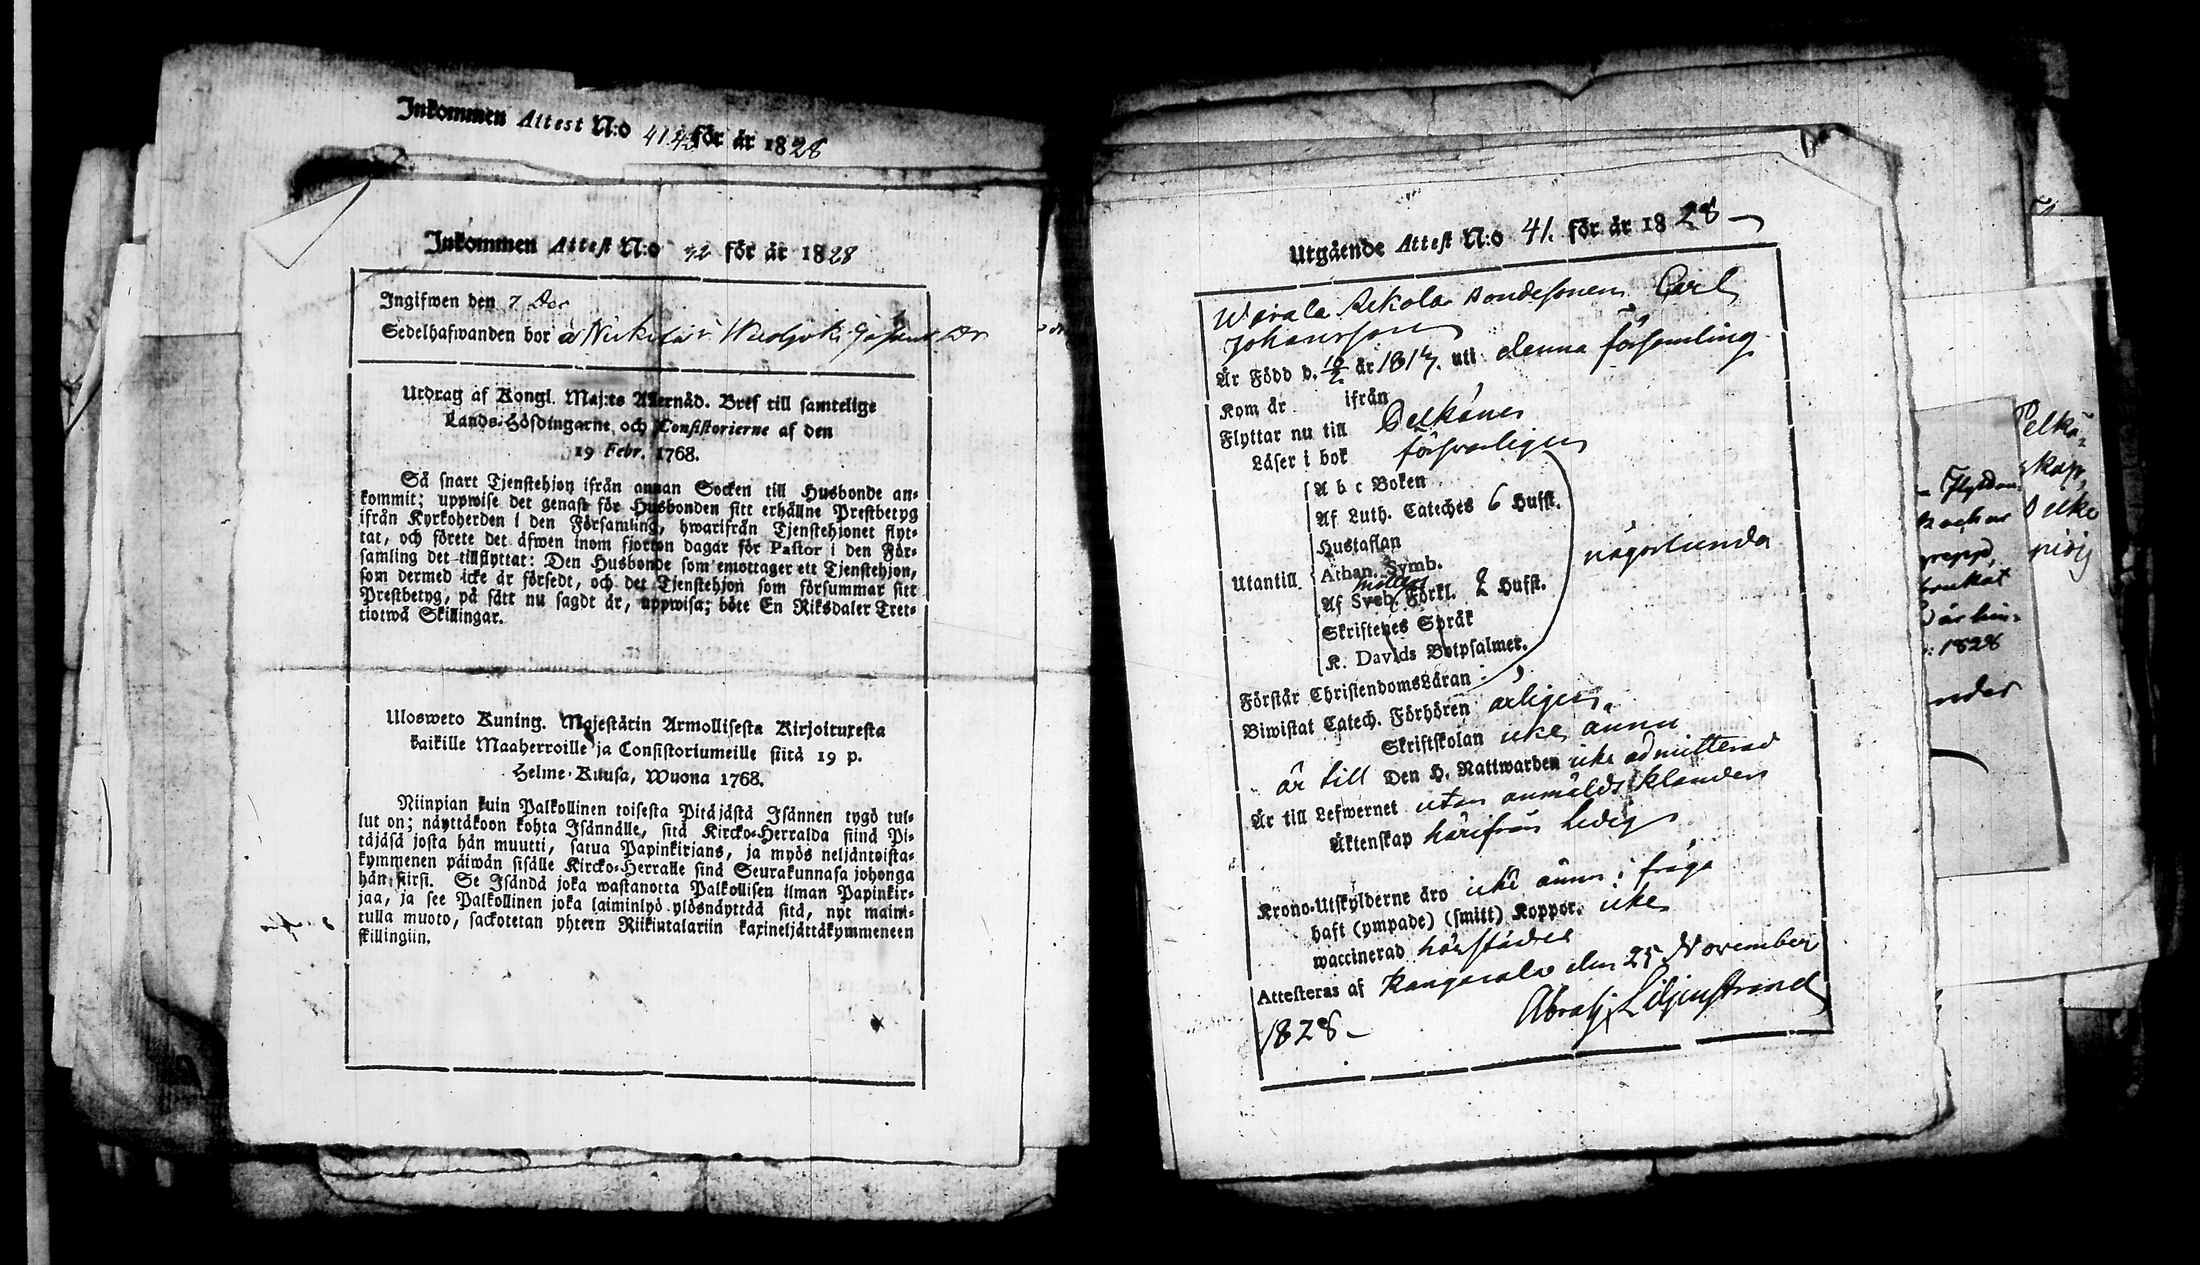 Inkommen Attest N:o 41.43 för år 1828
Inkommen Attest N:o 42 för år 1828
Ingifwen den 7 Dec
Sedelhafwanden bor å
Utdrag af Kongl. Maj:ts Allernåd. Bref till samtelige
Lands-Höfdingarne och Consistorierne af den
19 Febr. 1768.
Så snart Tjenstehjon ifrån annan Socken till Husbonde an-
kommit; uppwise det genast för Husbonden sitt erhållne Prestbetyg
ifrån Kyrkoherden i den Församling, hwarifrån Tjenstehjonet flyt-
tat, och förete det äfwen inom fjorton dagar för Pastor i den För-
samling det tillflyttat: Den Husbonde som emottager ett Tjenstehjon,
som dermed icke är försedt, och det Tjenstehjon som försummar sitt
Prestbetyg, på sätt nu sagdt är, uppwisa; böte En Riksdaler Tret-
tiotwå Skillingar.
Ulosweto Kuning. Majestätin Armollisesta Kirjoituxesta
kaikille Maaherroille ja Consistoriumeille siitä 19 p.
Helme-Kuusa, Wuona 1768.
Niinpian kuin Palkollinen toisesta Pitäjästä Isännen tygö tul-
lut on; näyttäkoon kohta Isännälle, sitä Kircko-Herralda siinä Pi-
täjäsä josta hän muutti, saatua Papinkirjans, ja myös neljäntoista-
kymmenen päiwän sisälle Kircko-Herralle siinä Seurakunnasa johonga
hän siirsi. Se Isändä joka wastanotta Palkollisen ilman Papinkir-
jaa, ja see Palkollinen joka laiminlyö ylösnäyttää sitä, nyt maini-
tulla muoto, sackotetan yhteen Riikintalariin kaxineljättäkymmeneen
skillingiin.
Utgående Attest N:o 41. för år 1828
Wärala Rekola Bondesonen Carl
Johansson
Är Född d. 18/2 år 1817. uti denna församling
Kom år ifrån
Flyttar nu till Pelkäne
Läser i bok försvarligen
A b c Boken
Af Luth. Cateches 6 Hufst.
Hustaflan
Athan. Symb.
Utantill någorlunda
Af Sveb. Förkl. 2 Hufst.
Skriftenes Språk
K. Davids Botpsalmer.
Förstår Christendoms Läran
Biwistat Catech. Förhören årligen
Skriftskolan icke ännu
är till Den H. Nattwarden icke admitterad
Är till Lefwernet utan anmäldt klander
Äktenskap härifrån ledig
Krono-Utskylderne äro icke ännu i fråga
haft (ympade) (smitt) Koppor. icke
waccinerad härstädes
Attesteras af Kangasala den 25 November
1828 Abrah. Liljenstrand
Pelkä-
skap,
1828